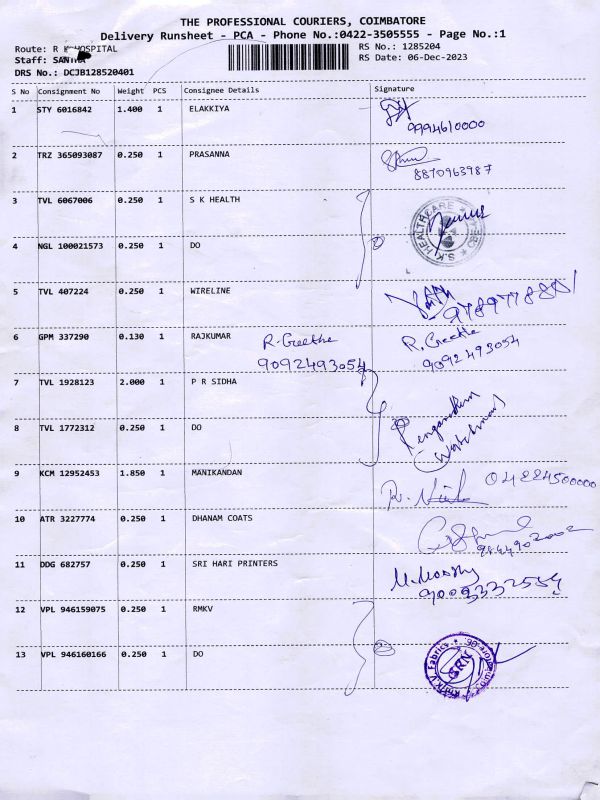 THE PROFESSIONAL COURIERS, COIMBATORE
Delivery Runsheet - PCA - Phone No.:0422-3505555 - Page No.:1
Route: R K HOSPITAL
RS No.: 1285204
Staff:
RS Date: 06-Dec-2023
DRS No.: DCJB128520401
S No Consignment No Weight PCS Consignee Details Signature
1 STY 6016842 1.400 1 ELAKKIYA
9994610000
2 TRZ 365093087 0.250 1 PRASANNA
8870963987
3 TVL 6067006 0.250 1 S K HEALTH
S.K. HEALTHCARE
4 NGL 100021573 0.250 1 DO
5 TVL 407224 0.250 1 WIRELINE
9789778801
6 GPM 337290 0.130 1 RAJKUMAR R. Geetha R. Geetha
9092493054 9092493054
7 TVL 1928123 2.000 1 P R SIDHA
8 TVL 1772312 0.250 1 DO
(Watchman)
9 KCM 12952453 1.850 1 MANIKANDAN
04224500000
10 ATR 3227774 0.250 1 DHANAM COATS
9844902002
11 DDG 682757 0.250 1 SRI HARI PRINTERS
9003332554
12 VPL 946159075 0.250 1 RMKV
13 VPL 946160166 0.250 1 DO
GRN